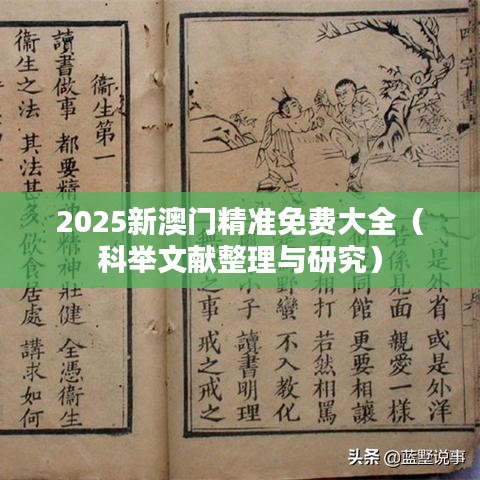 2025新澳门精准免费大全（
科举文献整理与研究）
或是外省 或是外洋
若係見面 親愛一樣
同館 更要相讓
相打 若然相罵
野蠻 不入教化
小子 讀書明理
之事 戒之戒之
衛生第一
讀書做事 都要精 神壯健 全憑衛生
衛生之法 其法甚多 飲食居處 講求如何
头条 @蓝墅说事